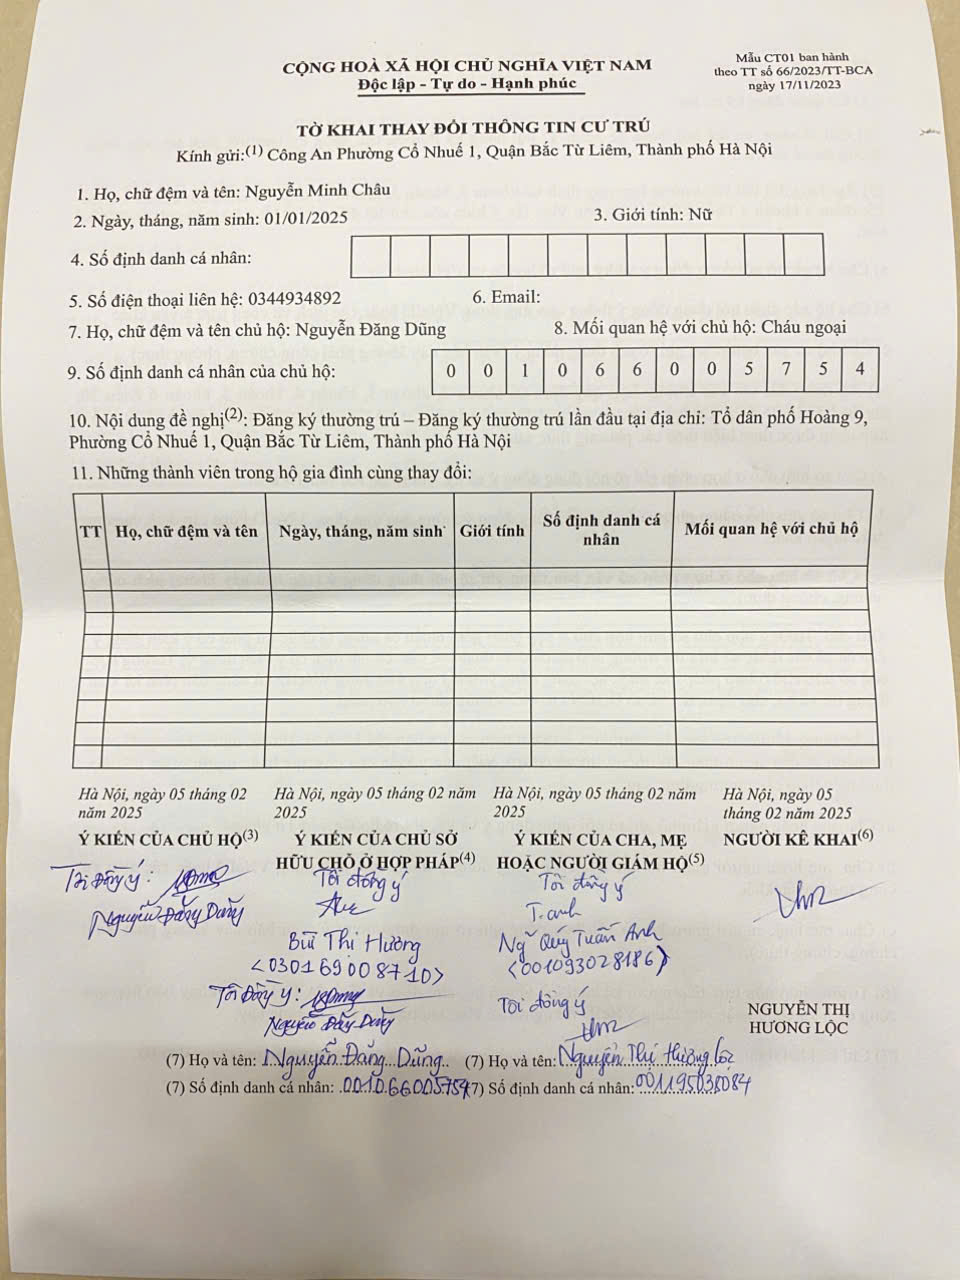 CỘNG HOÀ XÃ HỘI CHỦ NGHĨA VIỆT NAM
Độc lập - Tự do - Hạnh phúc
Mẫu CT01 ban hành
theo TT số 66/2023/TT-BCA
ngày 17/11/2023
TỜ KHAI THAY ĐỔI THÔNG TIN CƯ TRÚ
Kính gửi:(1) Công An Phường Cổ Nhuế 1, Quận Bắc Từ Liêm, Thành phố Hà Nội
1. Họ, chữ đệm và tên: Nguyễn Minh Châu
2. Ngày, tháng, năm sinh: 01/01/2025 3. Giới tính: Nữ
4. Số định danh cá nhân:
5. Số điện thoại liên hệ: 0344934892 6. Email:
7. Họ, chữ đệm và tên chủ hộ: Nguyễn Đăng Dũng 8. Mối quan hệ với chủ hộ: Cháu ngoại
9. Số định danh cá nhân của chủ hộ: 0 0 1 0 6 6 0 0 5 7 5 4
10. Nội dung đề nghị(2): Đăng ký thường trú – Đăng ký thường trú lần đầu tại địa chỉ: Tổ dân phố Hoàng 9,
Phường Cổ Nhuế 1, Quận Bắc Từ Liêm, Thành phố Hà Nội
11. Những thành viên trong hộ gia đình cùng thay đổi:
TT Họ, chữ đệm và tên Ngày, tháng, năm sinh Giới tính Số định danh cá nhân Mối quan hệ với chủ hộ
Hà Nội, ngày 05 tháng 02
năm 2025
Ý KIẾN CỦA CHỦ HỘ(3)
Tôi đồng ý:
Nguyễn Đăng Dũng
Hà Nội, ngày 05 tháng 02 năm
2025
Ý KIẾN CỦA CHỦ SỞ
HỮU CHỖ Ở HỢP PHÁP(4)
Tôi đồng ý
Bùi Thị Hường
<030169008710>
Tôi đồng ý:
Nguyễn Đăng Dũng
(7) Họ và tên: Nguyễn Đăng Dũng
(7) Số định danh cá nhân: 001066005754
Hà Nội, ngày 05 tháng 02 năm
2025
Ý KIẾN CỦA CHA, MẸ
HOẶC NGƯỜI GIÁM HỘ(5)
Tôi đồng ý
T.anh
Ng Quý Tuấn Anh
<001093028186>
Tôi đồng ý
(7) Họ và tên: Nguyễn Thị Hương Lộc
(7) Số định danh cá nhân: 001195038084
Hà Nội, ngày 05
tháng 02 năm 2025
NGƯỜI KÊ KHAI(6)
NGUYỄN THỊ
HƯƠNG LỘC